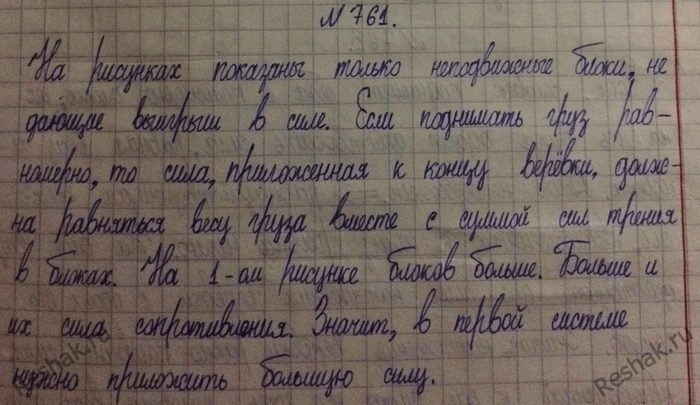 № 761.
На рисунках показаны только неподвижные блоки, не
дающие выигрыш в силе. Если поднимать груз рав-
номерно, то сила, приложенная к концу верёвки, долж-
на равняться весу груза вместе с суммой сил трения
в блоках. На 1-ом рисунке блоков больше. Больше и
их сила сопротивления. Значит, в первой системе
нужно приложить большую силу.
Reshak.ru
Reshak.ru